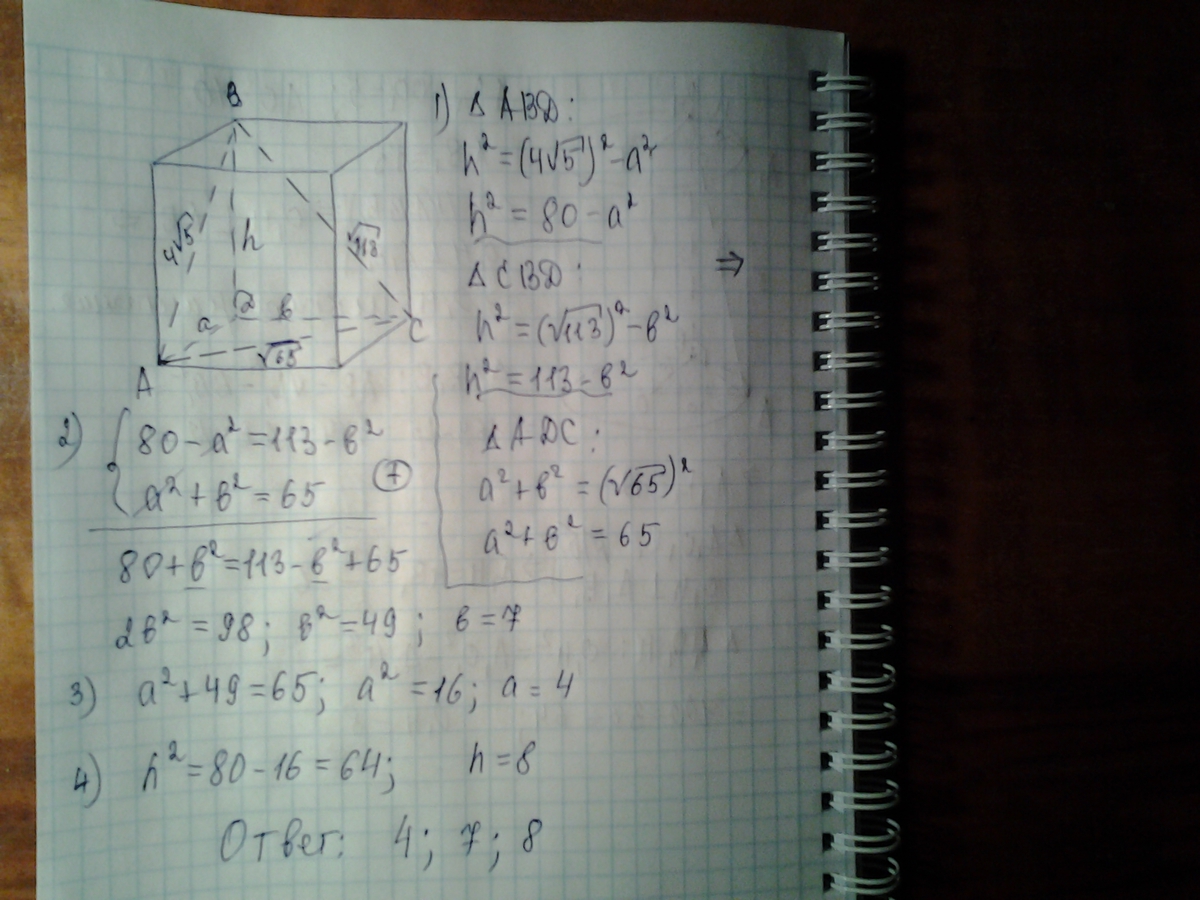 B
4√5
h
√113
a
D
в
C
√65
A
1) Δ ABD:
h² = (4√5)² - a²
h² = 80 - a²
Δ CBD:
⇒
h² = (√113)² - в²
h² = 113 - в²
Δ ADC:
a² + в² = (√65)²
a² + в² = 65
2) { 80 - a² = 113 - в²
a² + в² = 65
(+)
80 + в² = 113 - в² + 65
2в² = 98; в² = 49; в = 7
3) a² + 49 = 65; a² = 16; a = 4
4) h² = 80 - 16 = 64; h = 8
Ответ: 4; 7; 8